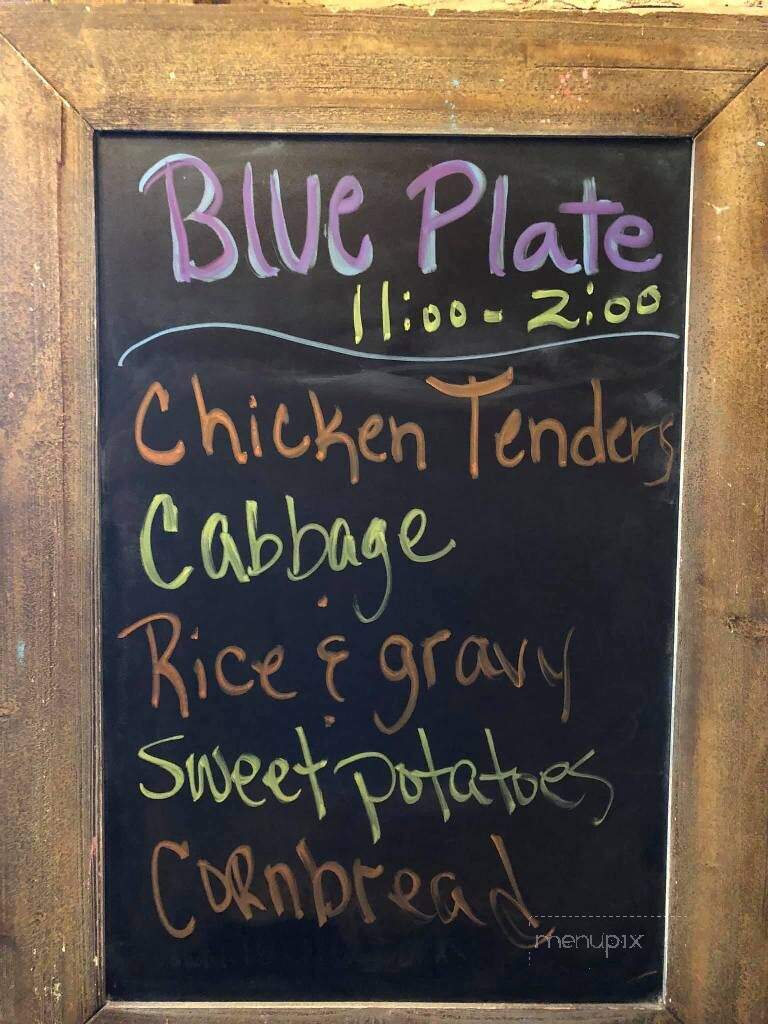 Blue Plate
11:00 - 2:00
Chicken Tenders
Cabbage
Rice & gravy
Sweet potatoes
Cornbread
menupix